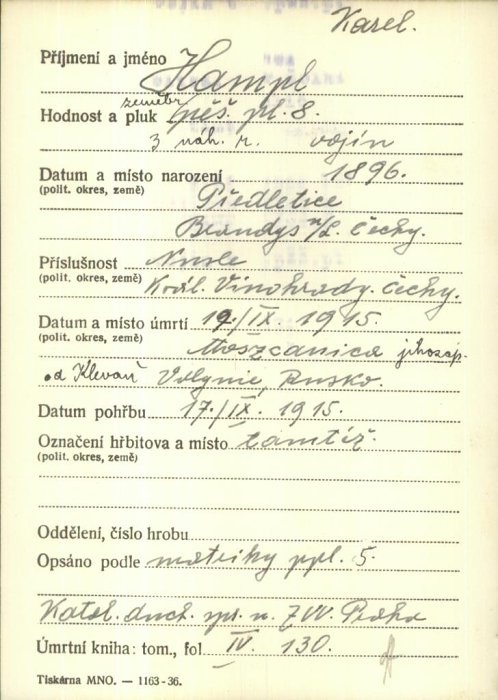 Karel.
Příjmení a jméno Hampl
zeměbr.
Hodnost a pluk pěš. pl. 8.
3 náh. r. vojín
Datum a místo narození 1896.
(polit. okres, země) Předletice
Brandýs n/L. Čechy.
Příslušnost Nusle
(polit. okres, země) Král. Vinohrady. Čechy.
Datum a místo úmrtí 17./IX. 1915.
(polit. okres, země) Moszcanica jihozáp.
od Klevaň Volynie, Rusko.
Datum pohřbu 17./IX. 1915.
Označení hřbitova a místo tamtéž.
(polit. okres, země)
Oddělení, číslo hrobu
Opsáno podle matriky ppl. 5.
Katol. duch. spr. n. ZVV. Praha
Úmrtní kniha: tom., fol. IV. 130.
Tiskárna MNO. — 1163-36.